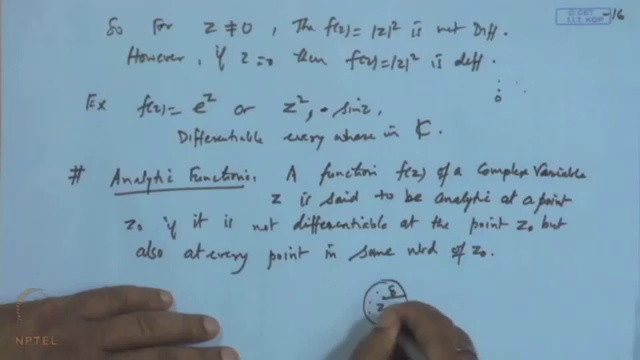 So For z ≠ 0, The f(z) = |z|² is not Diff.
However, if z = 0 then f(z) = |z|² is diff.
Ex f(z) = e^z or z², sinz,
Differentiable every where in ℂ.
# Analytic Functions: A function f(z) of a Complex Variable
z is said to be analytic at a point
z₀ if it is not differentiable at the point z₀ but
also at every point in some nbd of z₀.
δ
z
© CET
I.I.T. KGP
-16
NPTEL